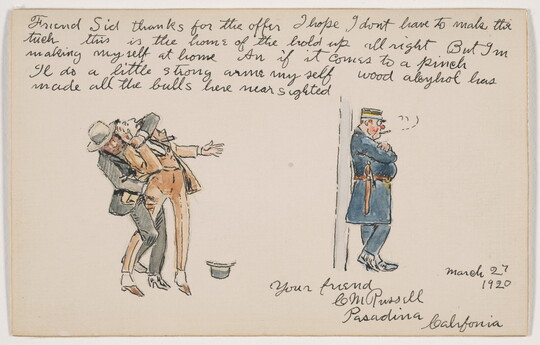 Friend Sid thanks for the offer I hope I dont have to make the
tuch this is the home of the hold up all right But Im
making myself at home An if it comes to a pinch
Il do a little strong arme my self wood alcyhol has
made all the bulls here nearsighted
march 27
1920
Your friend
CM Russell
Pasadina
Califonia